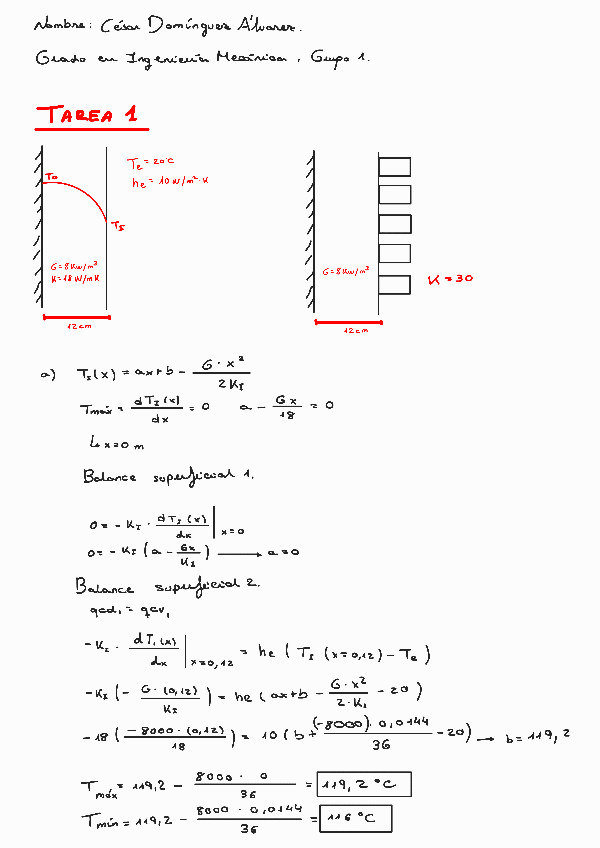 Nombre: César Domínguez Álvarez.
Grado en Ingeniería Mecánica, Grupo 1.
TAREA 1
T0
Ts
Te = 20°C
he = 10 W/m²·K
G = 8 KW/m³
K = 18 W/m K
12 cm
G = 8 KW/m³
12 cm
K = 30
a) TI(x) = ax+b - G·x² / 2KI
Tmáx = dTI(x)/dx = 0 a - Gx/18 = 0
↳ x = 0 m
Balance superficial 1.
0 = - KI · dTI(x)/dx | x=0
0 = - KI (a - Gx/KI) → a = 0
Balance superficial 2.
qcd1 = qcv1
-KI · dT1(x)/dx | x=0,12 = he (TI (x=0,12) - Te)
-KI (- G·(0,12)/KI) = he (ax+b - G·x²/2·KI - 20)
-18 (-8000·(0,12)/18) = 10 (b + (-8000)·0,0144/36 - 20) → b = 119,2
Tmáx = 119,2 - 8000·0/36 = 119,2 °C
Tmín = 119,2 - 8000·0,0144/36 = 116 °C